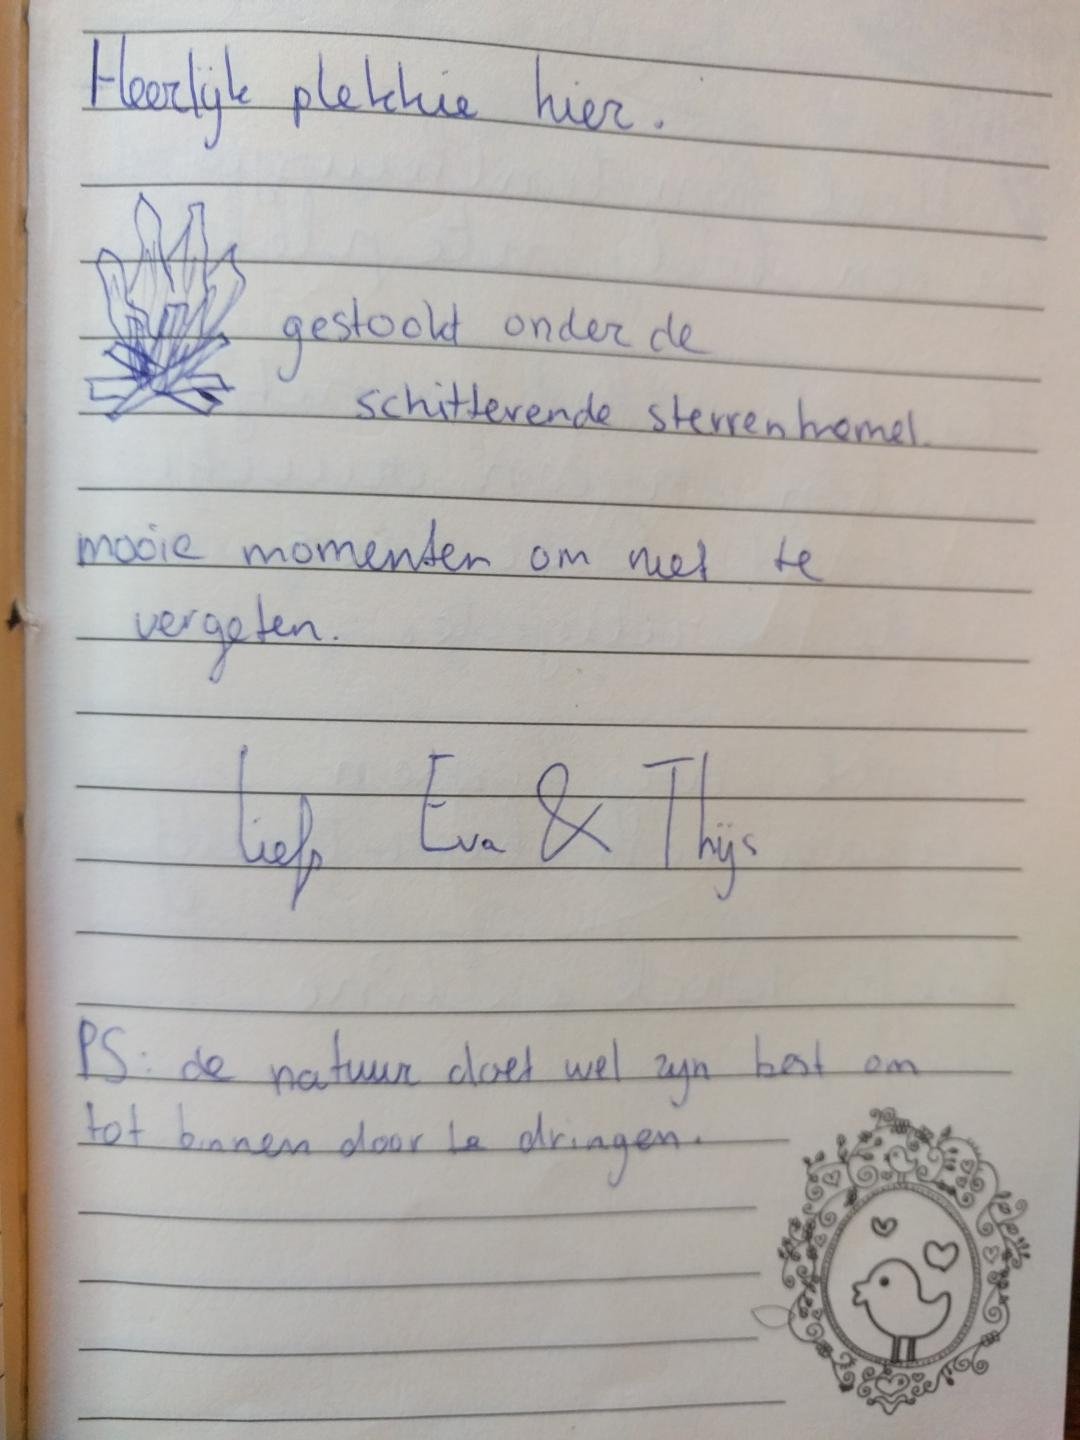 Heerlijk plekkie hier.
gestookt onder de
schitterende sterrenhemel.
mooie momenten om niet te
vergeten.
Liefs Eva & Thijs
PS: de natuur doet wel zijn best om
tot binnen door te dringen.